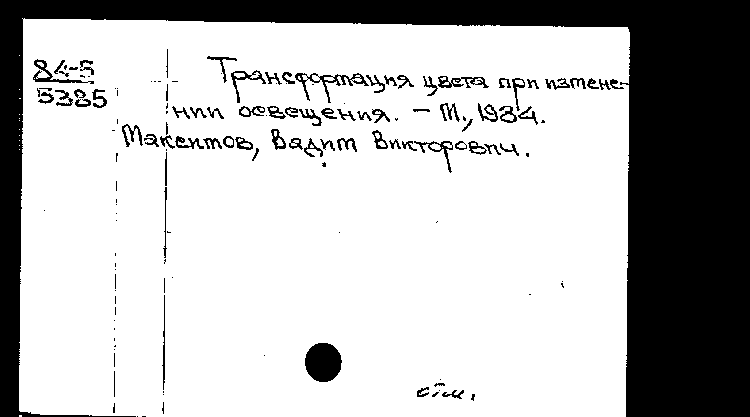 84-5
5385
Трансформация цвета при измене-
нии освещения. – М., 1984.
Максимов, Вадим Викторович.